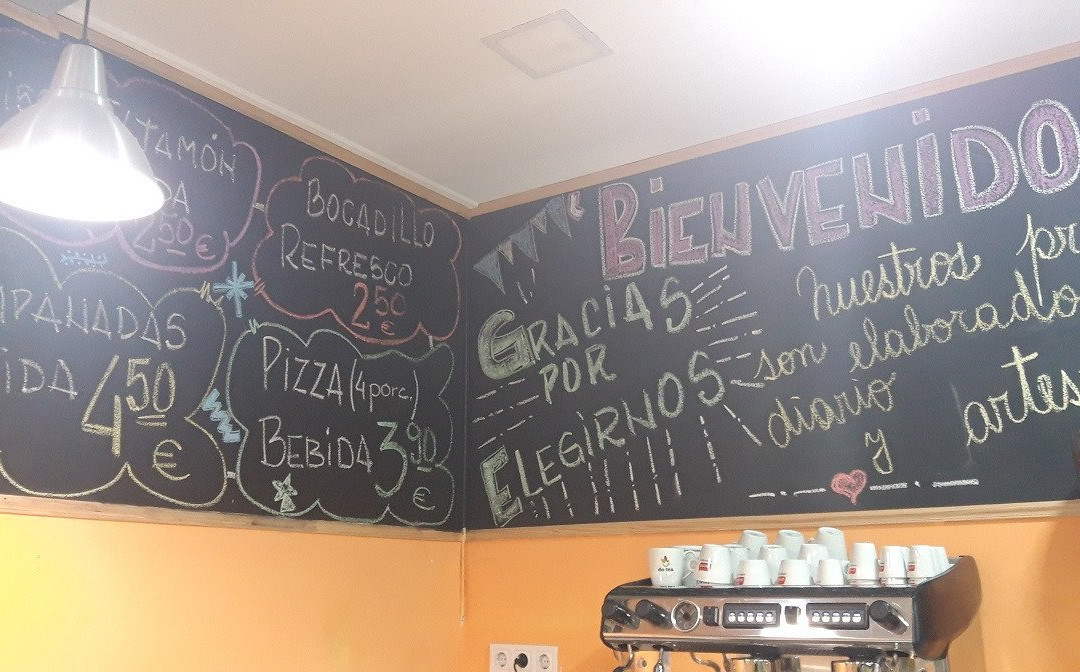 JAMÓN
2,50 €
BOCADILLO
REFRESCO
2,50
€
4,50
€
PIZZA (4 porc.)
BEBIDA 3,90
€
BIENVENIDO
GRACIAS
POR
ELEGIRNOS
nuestros pr
son elaborado
diario
y artes